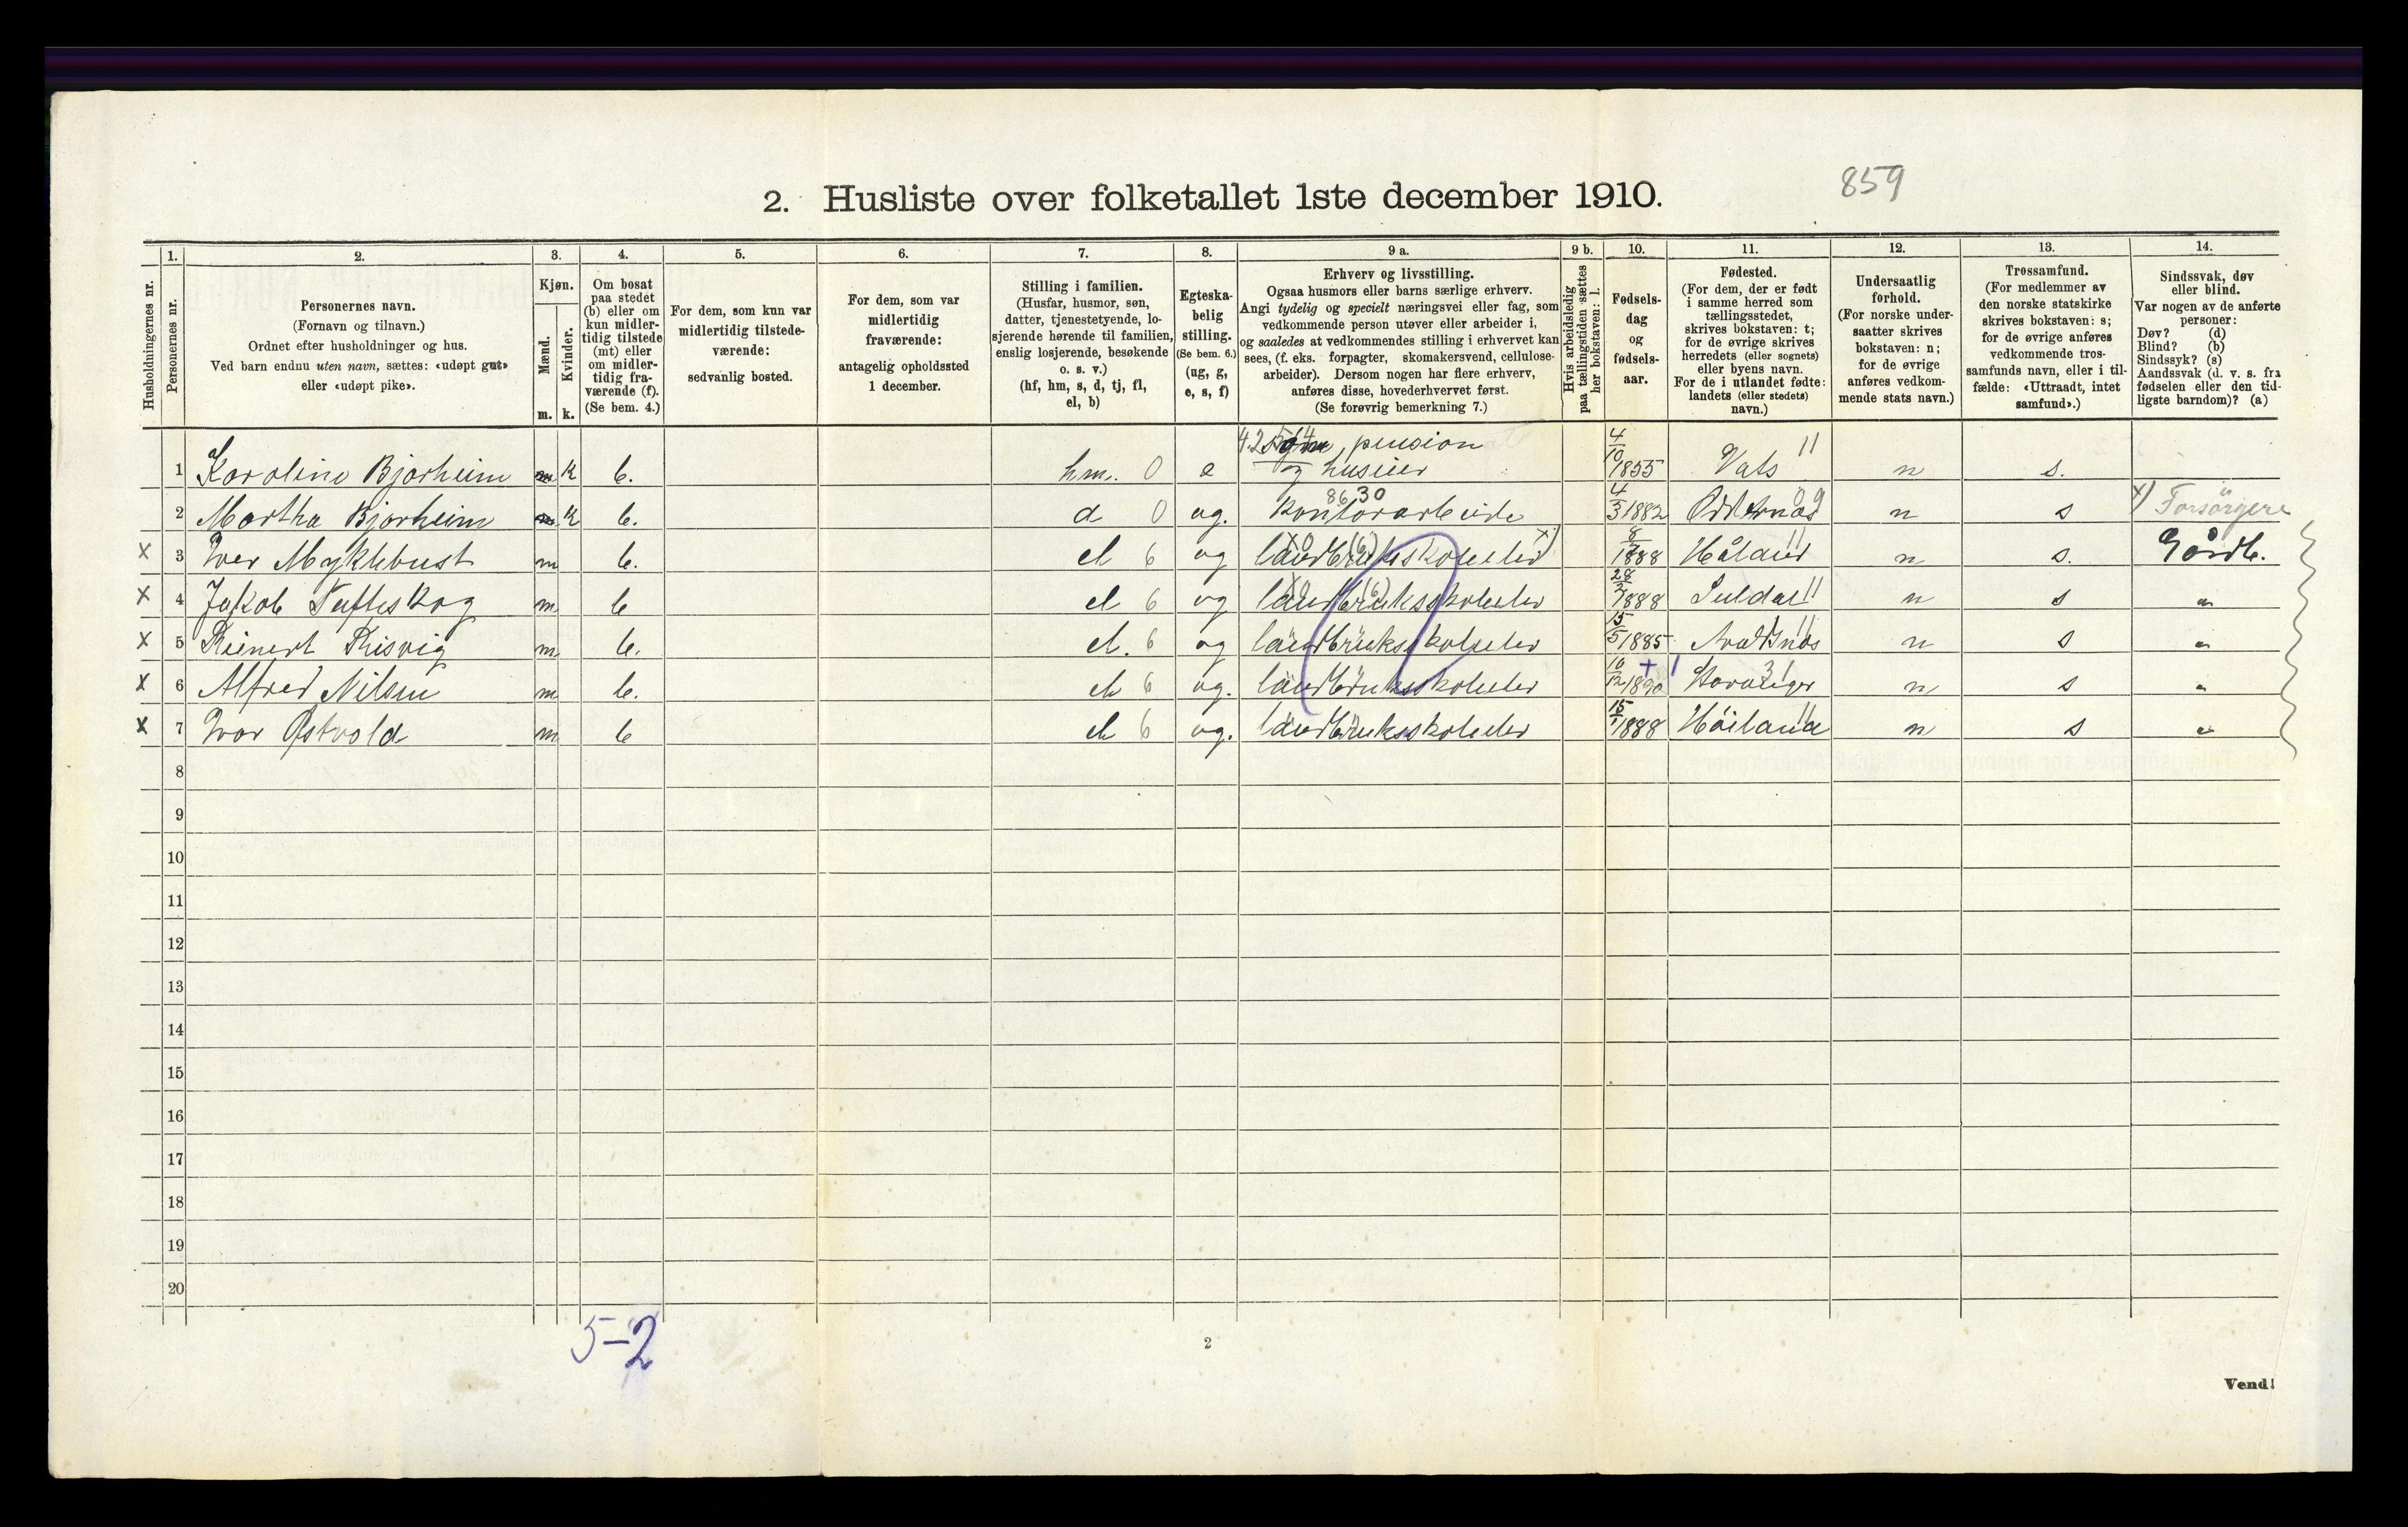 859
2. Husliste over folketallet 1ste december 1910.
Husholdningernes nr.
1. Personernes nr.
2. Personernes navn.
(Fornavn og tilnavn.)
Ordnet efter husholdninger og hus.
Ved barn endnu uten navn, sættes: «udøpt gut»
eller «udøpt pike».
3. Kjøn.
Mænd. m.
Kvinder. k.
4. Om bosat
paa stedet
(b) eller om
kun midler-
tidig tilstede
(mt) eller
om midler-
tidig fra-
værende (f).
(Se bem. 4.)
5. For dem, som kun var
midlertidig tilstede-
værende:
sedvanlig bosted.
6. For dem, som var
midlertidig
fraværende:
antagelig opholdssted
1 december.
7. Stilling i familien.
(Husfar, husmor, søn,
datter, tjenestetyende, lo-
sjerende hørende til familien,
enslig losjerende, besøkende
o. s. v.)
(hf, hm, s, d, tj, fl,
el, b)
8. Egteska-
belig
stilling.
(Se bem. 6.)
(ug, g,
e, s, f)
9 a. Erhverv og livsstilling.
Ogsaa husmors eller barns særlige erhverv.
Angi tydelig og specielt næringsvei eller fag, som
vedkommende person utøver eller arbeider i,
og saaledes at vedkommendes stilling i erhvervet kan
sees, (f. eks. forpagter, skomakersvend, cellulose-
arbeider). Dersom nogen har flere erhverv,
anføres disse, hovederhvervet først.
(Se forøvrig bemerkning 7.)
9 b. Hvis arbeidsledig
paa tællingstiden sættes
her bokstaven: l.
10. Fødsels-
dag
og
fødsels-
aar.
11. Fødested.
(For dem, der er født
i samme herred som
tællingsstedet,
skrives bokstaven: t;
for de øvrige skrives
herredets (eller sognets)
eller byens navn.
For de i utlandet fødte:
landets (eller stedets)
navn.)
12. Undersaatlig
forhold.
(For norske under-
saatter skrives
bokstaven: n;
for de øvrige
anføres vedkom-
mende stats navn.)
13. Trossamfund.
(For medlemmer av
den norske statskirke
skrives bokstaven: s;
for de øvrige anføres
vedkommende tros-
samfunds navn, eller i til-
fælde: «Uttraadt, intet
samfund».)
14. Sindssvak, døv
eller blind.
Var nogen av de anførte
personer:
Døv? (d)
Blind? (b)
Sindssyk? (s)
Aandssvak (d. v. s. fra
fødselen eller den tid-
ligste barndom)? (a)
1 Karoline Bjorheim k b. hm. 0 e pension og huseier 4/10 1855 Vats 11 n s.
2 Martha Bjorheim k b. d 0 ug. 86,30 Kontorarbeide 4/3 1882 Oddernes 09 n s x) Forsörgere
x 3 Iver Myklebust m b. el 6 ug landbruksskoleelev x) 8/7 1888 Håland 11 n s. Gårdb.
x 4 Jakob Tufteskog m b el 6 ug landbruksskoleelev 28/7 1888 Suldal 11 n s "
x 5 Reinert Risvig m b. el. 6 ug landbruksskoleelev 15/5 1885 Avaldsnes 11 n s "
x 6 Alfred Nilsen m b. el 6 ug. landbruksskoleelev 10/12 1890 Stavanger 31 n s "
x 7 Ivar Østvold m b el 6 ug. landbruksskoleelev 15/1 1888 Höiland 11 n s "
8
9
10
11
12
13
14
15
16
17
18
19
20
5-2
2
Vend!